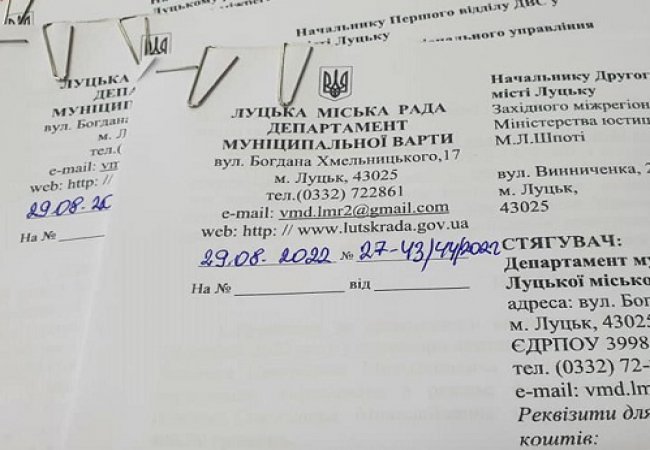 Начальнику Першого відділу ДВС у
місті Луцьку
ЛУЦЬКА
ДЕПА
МУНІЦИП
вул. Богдана
м. Л
тел.(
e-mail: vm
web: http: //
29.08. 20
На №
ЛУЦЬКА МІСЬКА РАДА
ДЕПАРТАМЕНТ
МУНІЦИПАЛЬНОЇ ВАРТИ
вул. Богдана Хмельницького,17
м. Луцьк, 43025
тел.(0332) 722861
e-mail: vmd.lmr2@gmail.com
web: http: // www.lutskrada.gov.ua
29.08. 2022 № 27-43/44/2022
На № від
Начальнику Другог
місті Луцьку
Західного міжрегіон
Міністерства юстиц
М.Л.Шпоті
вул. Винниченка, 2
м. Луцьк,
43025
СТЯГУВАЧ:
Департамент му
Луцької місько
адреса: вул. Бог
м. Луцьк, 43025
ЄДРПОУ 3998
тел. (0332) 72-
e-mail: vmd.lmr
Реквізити для
коштів: